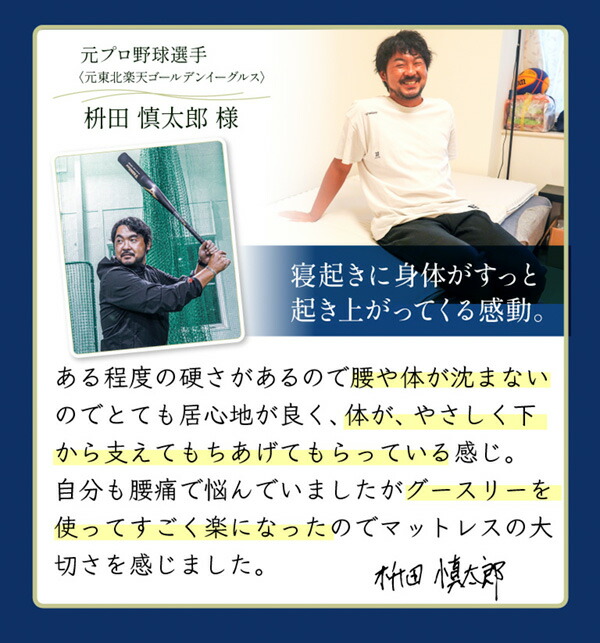 元プロ野球選手
〈元東北楽天ゴールデンイーグルス〉
枡田 慎太郎 様
寝起きに身体がすっと
起き上がってくる感動。
ある程度の硬さがあるので腰や体が沈まない
のでとても居心地が良く、体が、やさしく下
から支えてもちあげてもらっている感じ。
自分も腰痛で悩んでいましたがグースリーを
使ってすごく楽になったのでマットレスの大
切さを感じました。
枡田 慎太郎